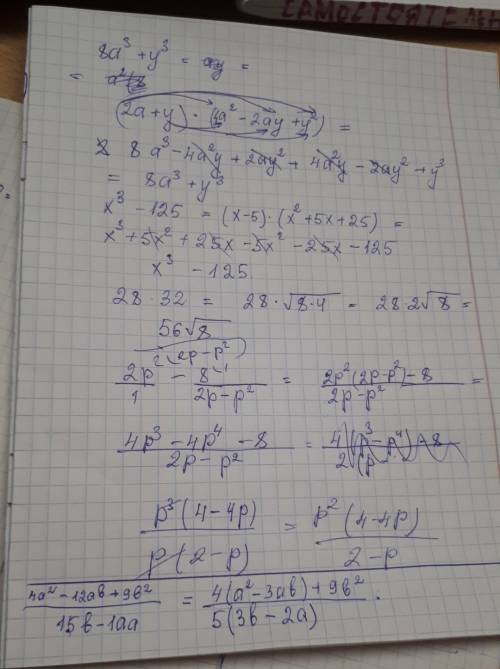 САМОСТОЯТЕ
8a³ + y³ = ay =
=
(2a+y) · (4a² - 2ay + y²) =
8a³ - 4a²y + 2ay² + 4a²y - 2ay² + y³
= 8a³ + y³
x³ - 125 = (x-5)·(x² + 5x + 25) =
x³ + 5x² + 25x - 5x² - 25x - 125
x³ - 125
28 · 32 = 28 · √8·4 = 28 · 2√8 =
56√8
2p²/1 (2p-p²) - 8/(2p-p²) \1 = (2p²(2p-p²)-8)/(2p-p²) =
(4p³ - 4p⁴ - 8)/(2p-p²) =
p³(4-4p)/p(2-p) = p²(4-4p)/(2-p)
(4a² - 12ab + 9b²)/(15b - 10a) = (4(a² - 3ab) + 9b²)/(5(3b - 2a)) .